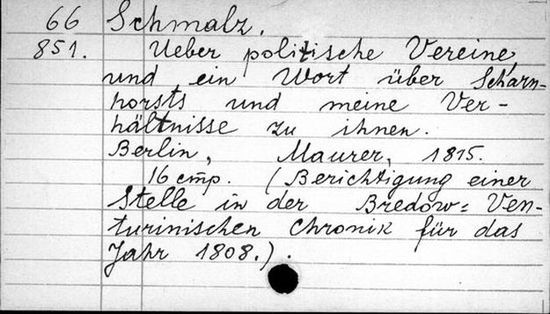 66 Schmalz.
851. Ueber politische Vereine,
und ein Wort über Scharn-
horsts und meine Ver-
hältnisse zu ihnen.
Berlin, Maurer, 1815.
16 cmp. (Berichtigung einer
Stelle in der Bredow=Ven-
turinischen Chronik für das
Jahr 1808.).